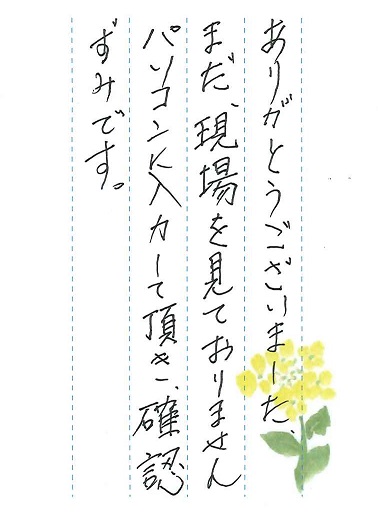 ありがとうございました、
まだ、現場を見ておりません
パソコンに入力して頂き、確認
ずみです。